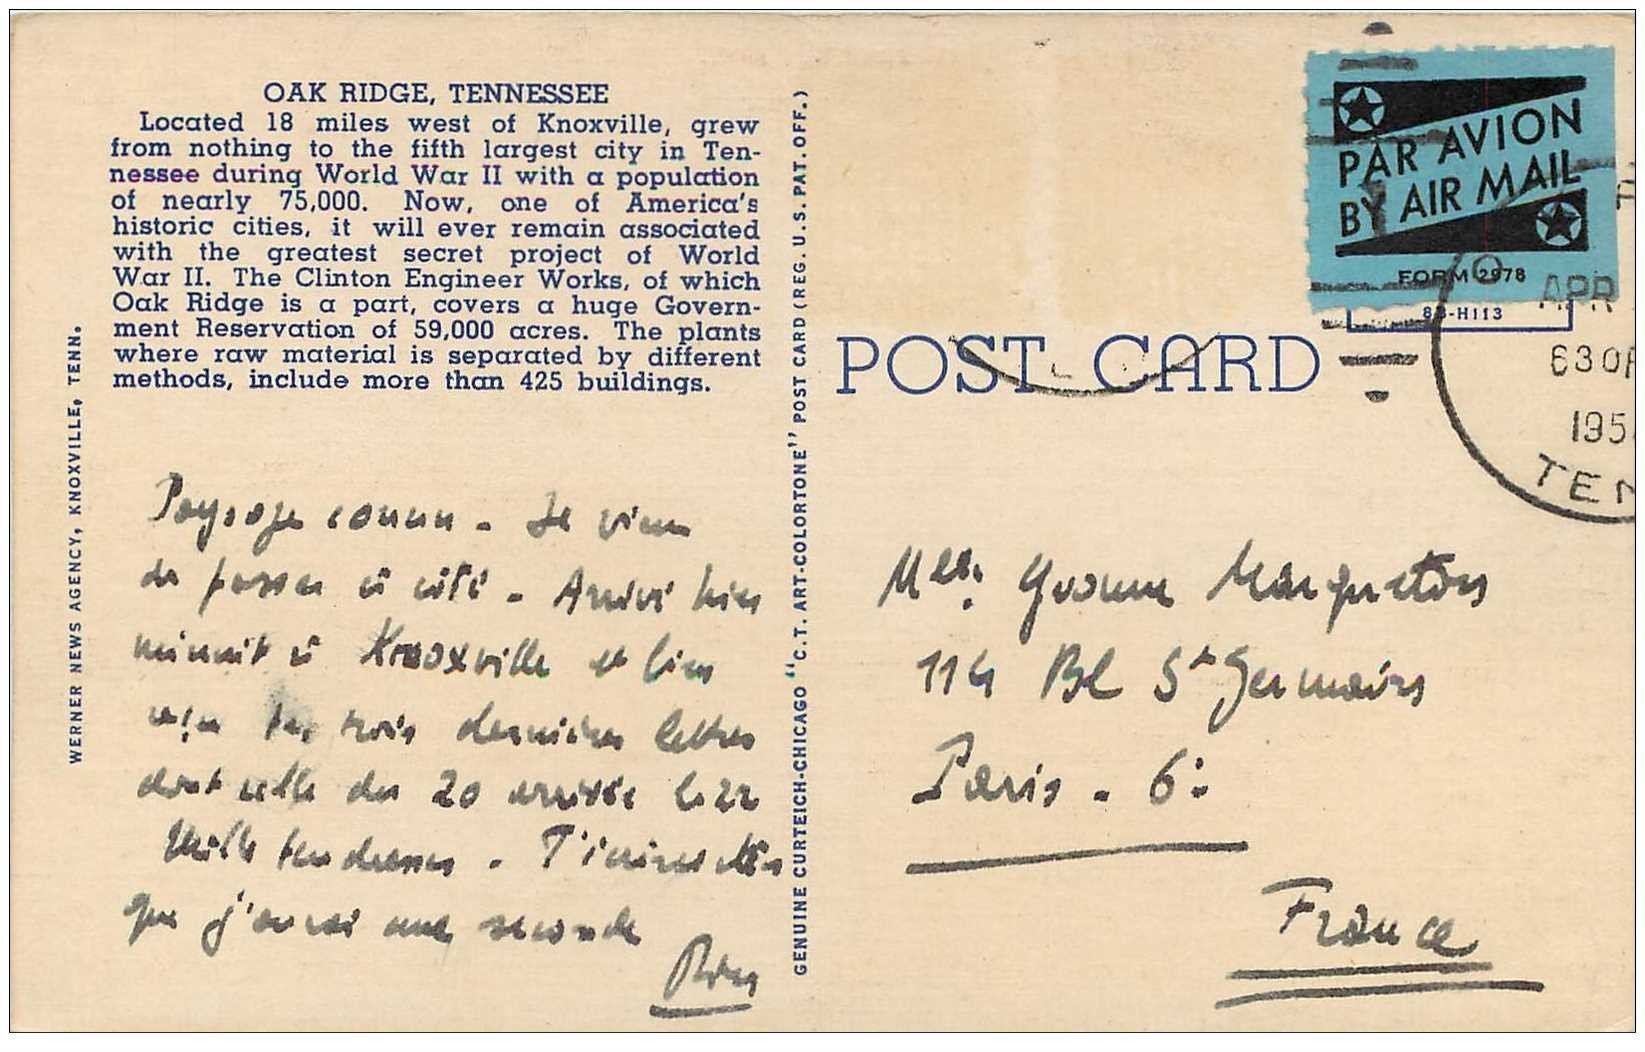 OAK RIDGE, TENNESSEE
Located 18 miles west of Knoxville, grew
from nothing to the fifth largest city in Ten-
nessee during World War II with a population
of nearly 75,000. Now, one of America's
historic cities, it will ever remain associated
with the greatest secret project of World
War II. The Clinton Engineer Works, of which
Oak Ridge is a part, covers a huge Govern-
ment Reservation of 59,000 acres. The plants
where raw material is separated by different
methods, include more than 425 buildings.
WERNER NEWS AGENCY, KNOXVILLE, TENN.
Paysage connu - Je viens
de passer à côté - Arrivé hier
minuit à Knoxville et bien
tes trois dernières lettres
dont celle du 20 arrivée le 22
Mille tendresses - T'écrirai dès
que j'aurai une seconde
GENUINE CURTEICH-CHICAGO "C.T. ART-COLORTONE" POST CARD (REG. U.S. PAT. OFF.)
PAR AVION
BY AIR MAIL
FORM 2978
8B-H113
POST CARD
APR
630P
195
TEN
Mlle. Yvonne
114 Bl St Germain
Paris - 6e
France